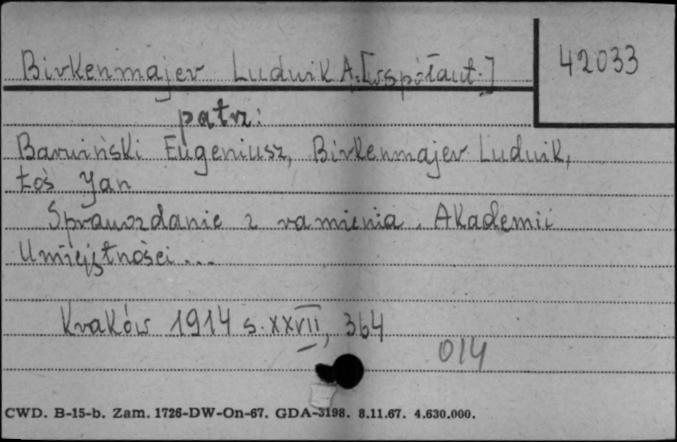 42033
Birkenmajer Ludwik A. [współaut.]
patrz:
Barwiński Eugeniusz, Birkenmajer Ludwik,
Łoś Jan
Sprawozdanie z ramienia Akademii
Umiejętności...
Kraków 1914 s. XXVII, 364
014
CWD. B-15-b. Zam. 1726-DW-On-67. GDA-3198. 8.11.67. 4.630.000.